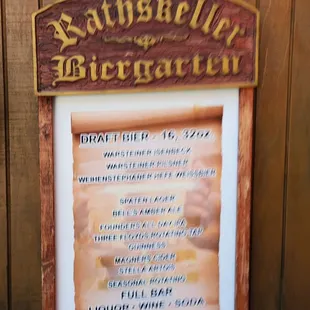 Rathskeller
Biergarten
DRAFT BIER - 16, 32oz
WARSTEINER ISENBECK
WARSTEINER PILSNER
WEIHENSTEPHANER HEFE WEISSBIER
SPATEN LAGER
BELL'S AMBER ALE
FOUNDERS ALL DAY IPA
THREE FLOYDS ROTATING TAP
GUINNESS
MAGNERS CIDER
STELLA ARTOIS
SEASONAL ROTATING
FULL BAR
LIQUOR - WINE - SODA